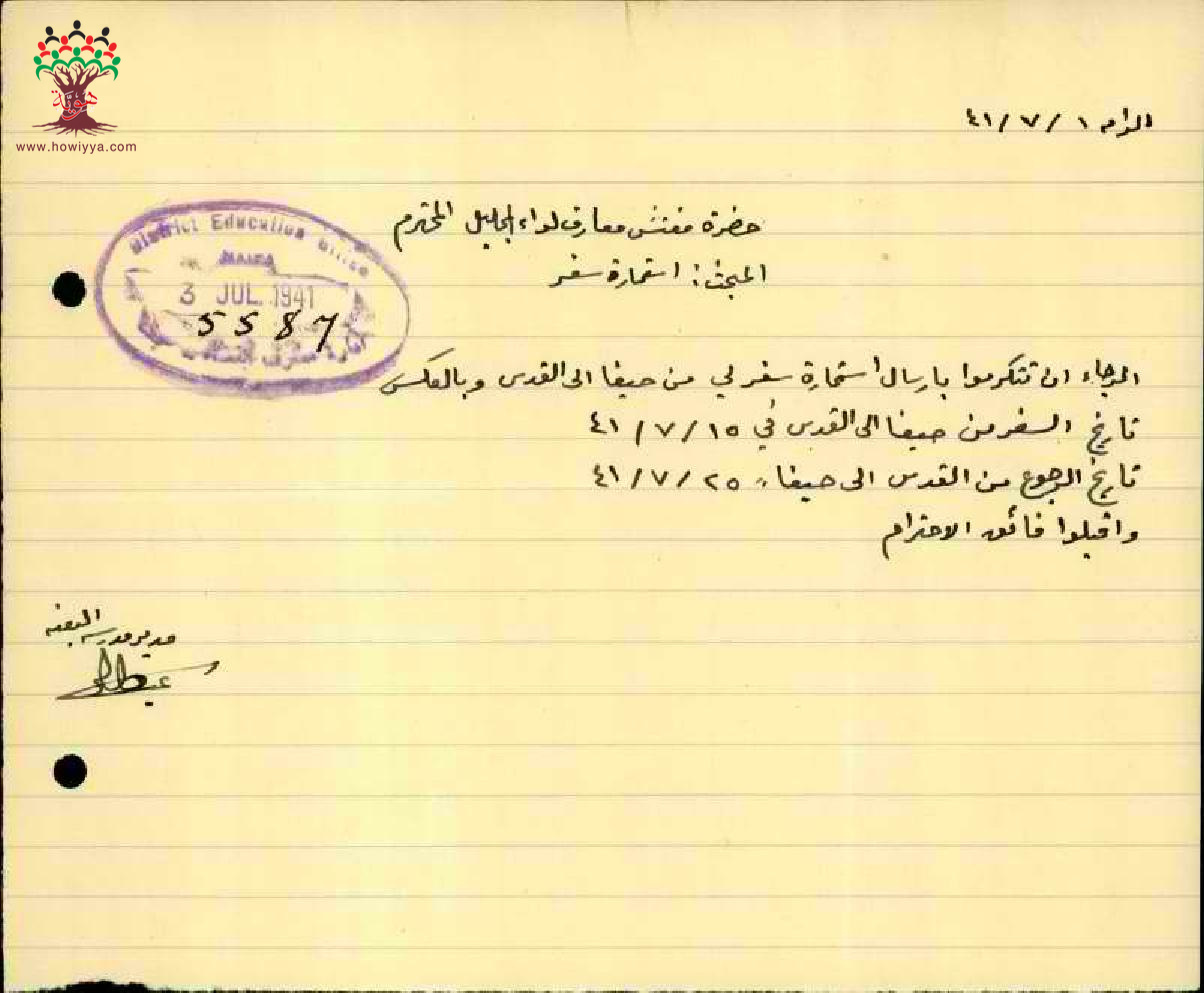 هوية
www.howiyya.com
الرامه ١ / ٧ / ٤١
حضرة مفتش معارف لواء الجليل المحترم
المبحث: استمارة سفر
District Education Office
HAIFA
3 JUL 1941
5587
الرجاء ان تتكرموا بارسال استمارة سفر لي من حيفا الى القدس وبالعكس
تاريخ السفر من حيفا الى القدس في ١٥ / ٧ / ٤١
تاريخ الرجوع من القدس الى حيفا ،، ٢٥ / ٧ / ٤١
واقبلوا فائق الاحترام
مدير مدرسة البعنه